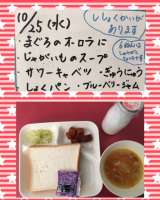 10/25(水)
ししょくかいが
あります
・まぐろのオーロラに
・じゃがいものスープ
・サワーキャベツ ・ぎゅうにゅう
・しょくパン ・ブルーベリージャム